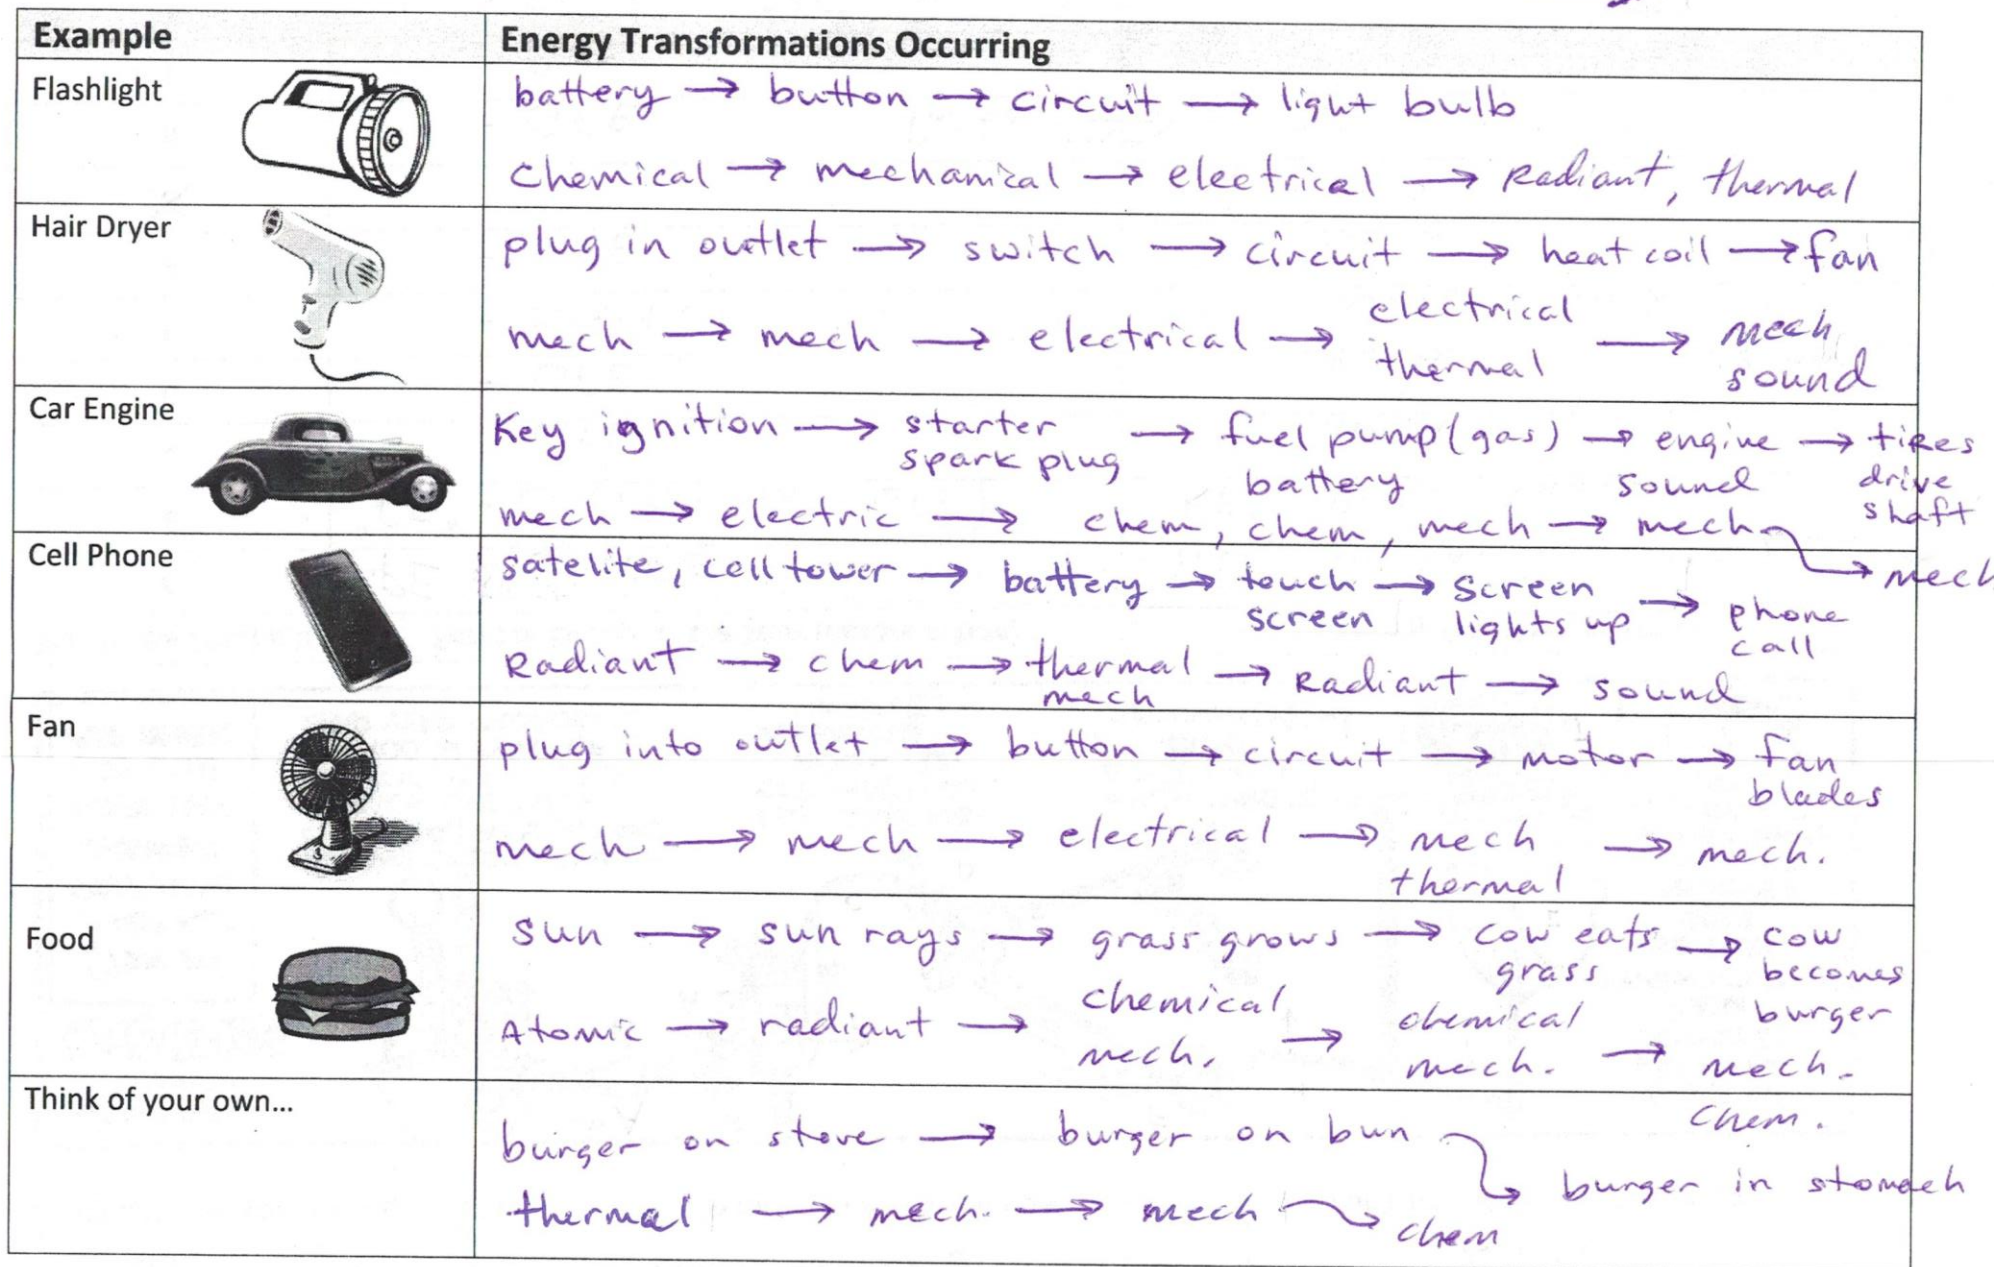 Example
Energy Transformations Occurring
Flashlight
battery → button → circuit → light bulb
Chemical → mechanical → electrical → Radiant, thermal
Hair Dryer
plug in outlet → switch → circuit → heat coil → fan
mech → mech → electrical → electrical → mech
thermal sound
Car Engine
Key ignition → starter → fuel pump (gas) → engine → tires
spark plug battery sound drive
shaft
mech → electric → chem, chem, mech → mech → mech
Cell Phone
satelite, cell tower → battery → touch → screen → phone
screen lights up call
Radiant → chem → thermal → Radiant → sound
mech
Fan
plug into outlet → button → circuit → motor → fan
blades
mech → mech → electrical → mech → mech.
thermal
Food
sun → sun rays → grass grows → cow eats → cow
grass becomes
burger
Atomic → radiant → chemical → chemical → mech.
mech. mech. chem.
Think of your own...
burger on stove → burger on bun → burger in stomach
thermal → mech. → mech → chem